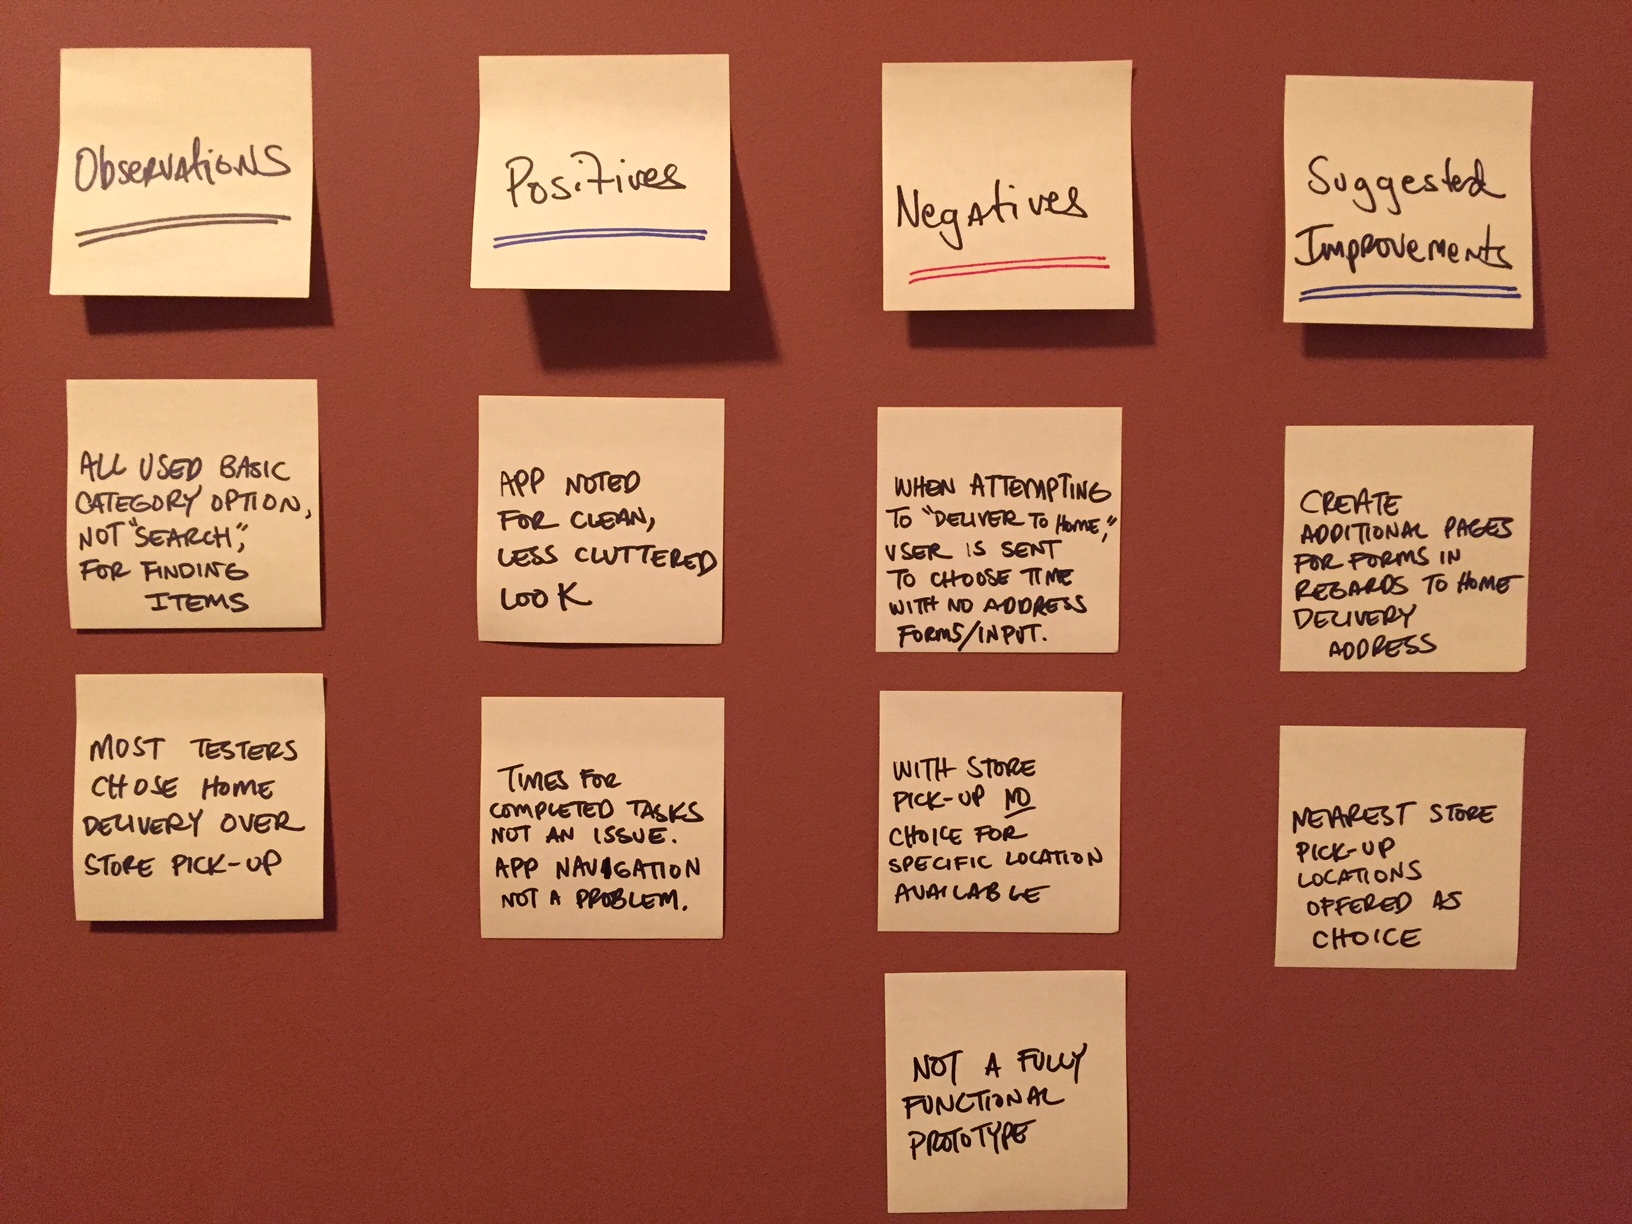 Observations
ALL USED BASIC
CATEGORY OPTION,
NOT "SEARCH",
FOR FINDING
ITEMS
MOST TESTERS
CHOSE HOME
DELIVERY OVER
STORE PICK-UP
Positives
APP NOTED
FOR CLEAN,
LESS CLUTTERED
LOOK
TIMES FOR
COMPLETED TASKS
NOT AN ISSUE.
APP NAVIGATION
NOT A PROBLEM.
Negatives
WHEN ATTEMPTING
TO "DELIVER TO HOME,"
USER IS SENT
TO CHOOSE TIME
WITH NO ADDRESS
FORMS/INPUT.
WITH STORE
PICK-UP NO
CHOICE FOR
SPECIFIC LOCATION
AVAILABLE
NOT A FULLY
FUNCTIONAL
PROTOTYPE
Suggested
Improvements
CREATE
ADDITIONAL PAGES
FOR FORMS IN
REGARDS TO HOME
DELIVERY
ADDRESS
NEAREST STORE
PICK-UP
LOCATIONS
OFFERED AS
CHOICE